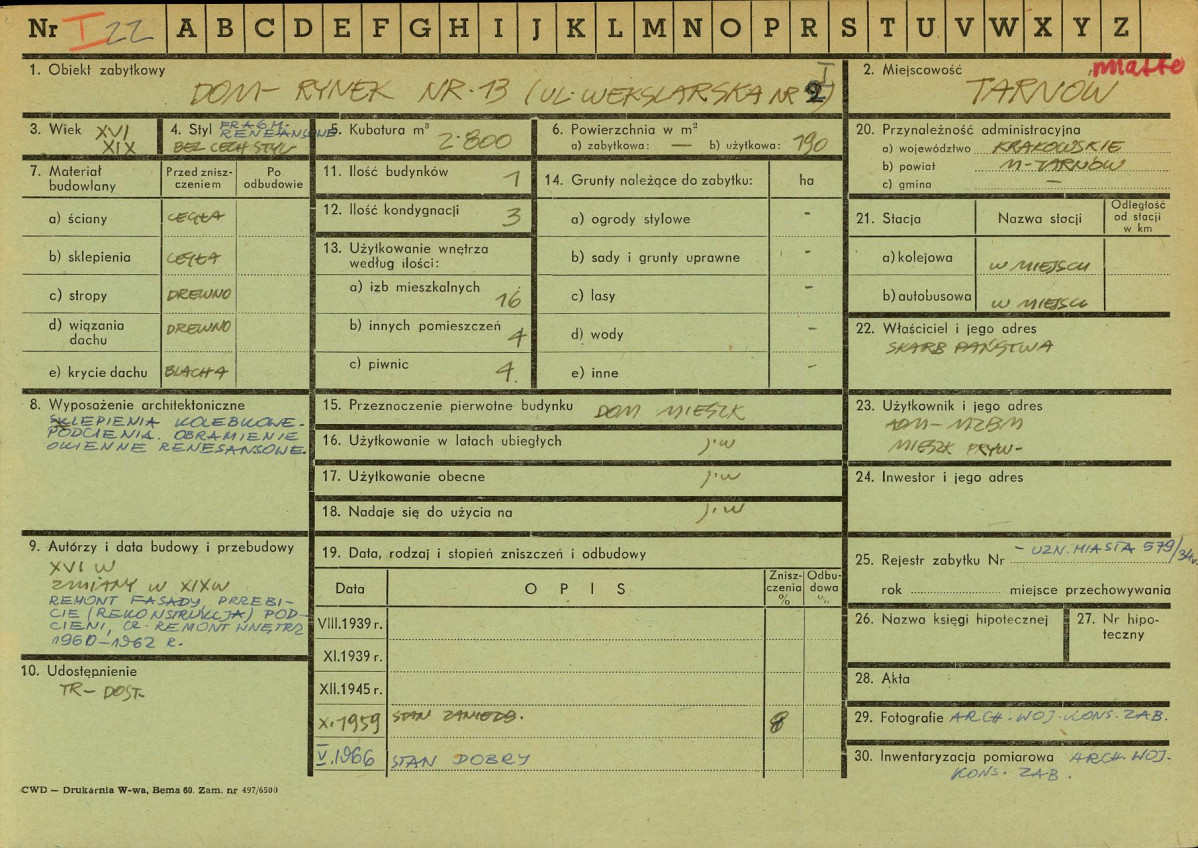 Nr I 22 A B C D E F G H I J K L M N O P R S T U V W X Y Z
1. Obiekt zabytkowy
DOM – RYNEK NR. 13 (UL. WEKSLARSKA NR 2)
2. Miejscowość miasto
TARNÓW
3. Wiek XVI
XIX
4. Styl FRAGM.
RENESANSOWE
BEZ CECH STYL.
5. Kubatura m³
2.800
6. Powierzchnia w m²
a) zabytkowa: — b) użytkowa: 190
20. Przynależność administracyjna
a) województwo KRAKOWSKIE
b) powiat M-TARNÓW
c) gmina —
7. Materiał budowlany
Przed zniszczeniem
Po odbudowie
a) ściany CEGŁA
b) sklepienia CEGŁA
c) stropy DREWNO
d) wiązania dachu DREWNO
e) krycie dachu BLACHA
11. Ilość budynków 1
12. Ilość kondygnacji 3
13. Użytkowanie wnętrza
według ilości:
a) izb mieszkalnych 16
b) innych pomieszczeń 4
c) piwnic 4.
14. Grunty należące do zabytku: ha
a) ogrody stylowe -
b) sady i grunty uprawne -
c) lasy -
d) wody -
e) inne -
21. Stacja
Nazwa stacji
Odległość
od stacji
w km
a) kolejowa W MIEJSCU
b) autobusowa W MIEJSCU
22. Właściciel i jego adres
SKARB PAŃSTWA
8. Wyposażenie architektoniczne
SKLEPIENIA KOLEBKOWE.
PODCIENIA. OBRAMIENIE
OKIENNE RENESANSOWE.
15. Przeznoczenie pierwotne budynku DOM MIESZK
16. Użytkowanie w latach ubiegłych j.w
17. Użytkowanie obecne j.w
18. Nadaje się do użycia na j.w
23. Użytkownik i jego adres
ADM – MZBM
MIESZK PRYW-
24. Inwestor i jego adres
9. Autorzy i data budowy i przebudowy
XVI W
ZMIANY W XIX W
REMONT FASADY, PRZEBI-
CIE (REKONSTRUKCJA) POD-
CIENI, CZ. REMONT WNĘTRZ
1960–1962 r.
10. Udostępnienie
TR – DOST.
19. Data, rodzaj i stopień zniszczeń i odbudowy
Data
OPIS
Zniszczenia %
Odbudowa %
VIII.1939 r.
XI.1939 r.
XII.1945 r.
X.1959 STAN ZANIEDB. 8
V.1966 STAN DOBRY
25. Rejestr zabytku Nr – UZN. MIASTA 579/34v.
rok miejsce przechowywania
26. Nazwa księgi hipotecznej
27. Nr hipoteczny
28. Akta
29. Fotografie ARCH. WOJ. KONS. ZAB.
30. Inwentaryzacja pomiarowa ARCH. WOJ.
KONS. ZAB.
CWD — Drukarnia W-wa, Bema 60. Zam. nr 497/6500